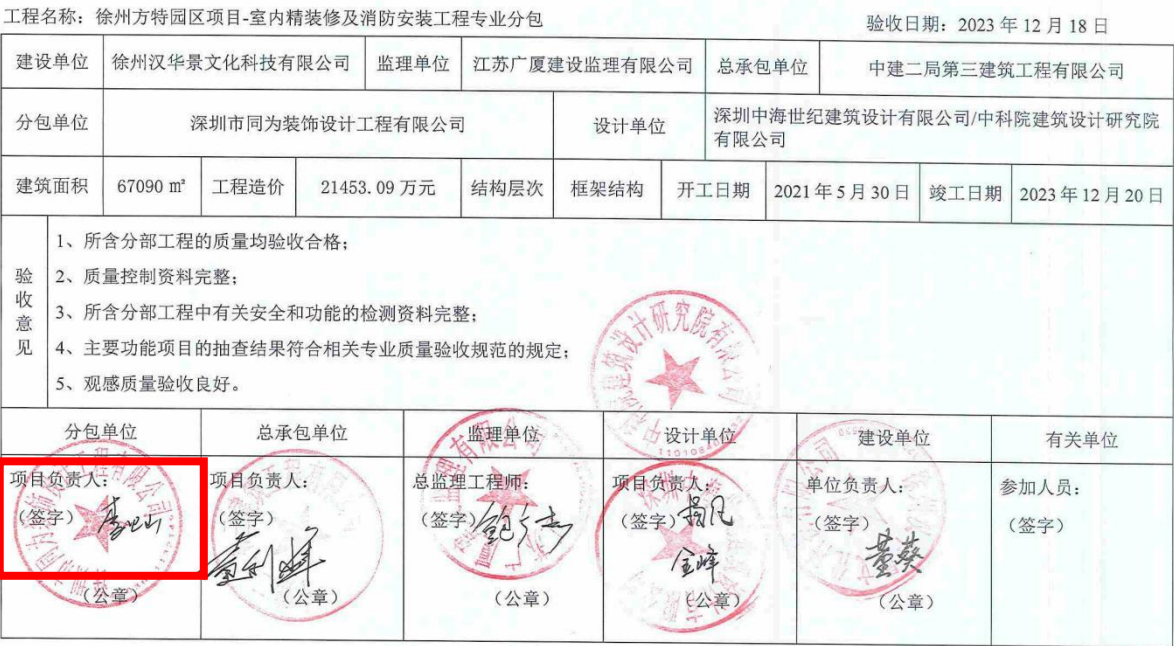 工程名称：徐州方特园区项目-室内精装修及消防安装工程专业分包
验收日期：2023年12月18日
建设单位 徐州汉华景文化科技有限公司 监理单位 江苏广厦建设监理有限公司 总承包单位 中建二局第三建筑工程有限公司
分包单位 深圳市同为装饰设计工程有限公司 设计单位 深圳中海世纪建筑设计有限公司/中科院建筑设计研究院
有限公司
建筑面积 67090 ㎡ 工程造价 21453.09 万元 结构层次 框架结构 开工日期 2021年5月30日 竣工日期 2023年12月20日
验收意见
1、所含分部工程的质量均验收合格；
2、质量控制资料完整；
3、所含分部工程中有关安全和功能的检测资料完整；
4、主要功能项目的抽查结果符合相关专业质量验收规范的规定；
5、观感质量验收良好。
分包单位 总承包单位 监理单位 设计单位 建设单位 有关单位
项目负责人： 项目负责人： 总监理工程师： 项目负责人： 单位负责人： 参加人员：
（签字） （签字） （签字） （签字） （签字） （签字）
金峰 董葵
（公章） （公章） （公章） （公章） （公章）